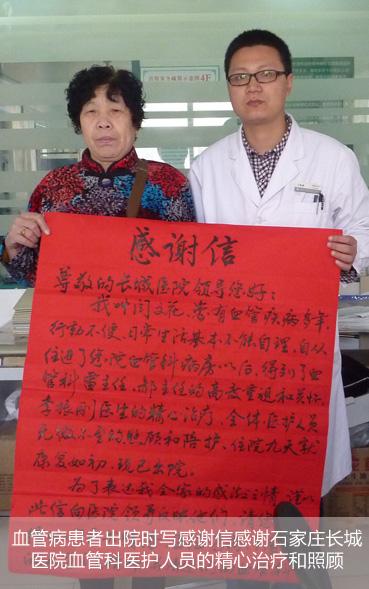 感谢信
尊敬的长城医院领导您好：
我叫闫文花，患有血管疾病多年，
行动不便，日常生活基本不能自理，自从
住进了您院血管科病房以后，得到了血
管科雷主任、郝主任的高度重视和关怀，
李振刚医生的精心治疗，全体医护人员
无微不至的照顾和陪护，住院九天就
康复如初，现已出院。
为了表达我全家的感激之情，谨以
此信向医院领导
血管病患者出院时写感谢信感谢石家庄长城
医院血管科医护人员的精心治疗和照顾